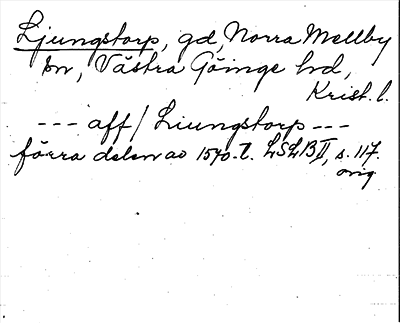 Ljungstorp, gd, Norra Mellby
sn, Västra Göinge hd,
Krist. l.
--- aff / Liungstorp ---
förra delen av 1540-t. LSLB II, s. 117.
orig